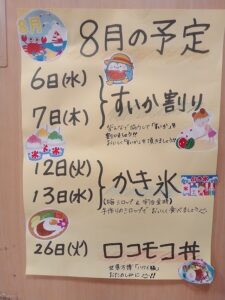 8月
8月の予定
6日(水)
7日(木)
すいか割り
みんなで協力して"すいか"を
割りましょう!!
おいしく"すいか"を頂きましょう!!
12日(火)
13日(水)
かき氷
手作りシロップで おいしく食べましょう
26日(火)
ロコモコ丼
世界万博
おたのしみに